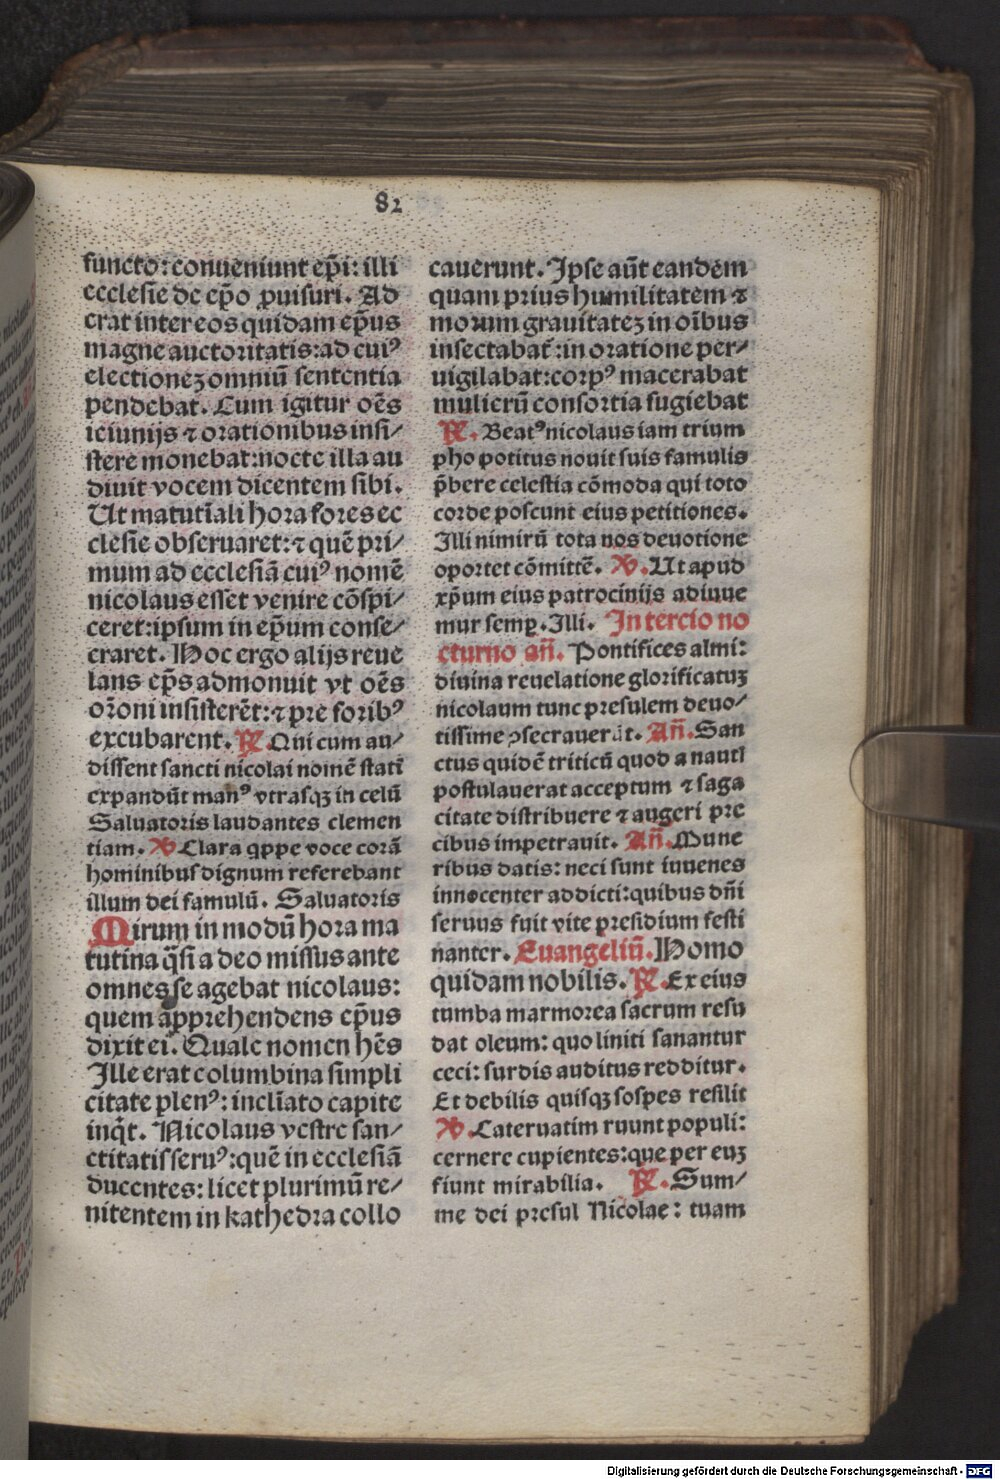 82
functo: conueniunt ep̄i: illi
ecclesie de ep̄o ꝓuisuri. Ad
erat inter eos quidam ep̄us
magne auctoritatis: ad cuiꝰ
electioneꝫ omniū sententia
pendebat. Cum igitur oēs
ieiunijs ⁊ orationibus insi⸗
stere monebat: nocte illa au
diuit vocem dicentem sibi.
Ut matutīali hora fores ec
clesie obseruaret: ⁊ quē pri⸗
mum ad ecclesiā cuiꝰ nomē
nicolaus esset venire cōspi⸗
ceret: ipsum in ep̄um conse⸗
craret. Hoc ergo alijs reue
lans ep̄s admonuit vt oēs
or̄oni insisterēt: ⁊ pre foribꝰ
excubarent. ℟. Qui cum au⸗
dissent sancti nicolai nomē stati
expandūt manꝰ vtrasqꝫ in celū
Saluatoris laudantes clemen
tiam. ℣ Clara qppe voce corā
hominibus dignum referebant
illum dei famulū. Saluatoris
Mirum in modū hora ma
tutina q̄si a deo missus ante
omnes se agebat nicolaus:
quem apprehendens ep̄us
dixit ei. Quale nomen hēs
Ille erat columbina simpli
citate plenꝰ: incliato capite
inq̄t. Nicolaus vestre san⸗
ctitatis seruꝰ: quē in ecclesiā
ducentes: licet plurimū re⸗
nitentem in kathedra collo
cauerunt. Ipse aūt eandem
quam prius humilitatem ⁊
morum grauitateꝫ in oībus
insectabat̄: in oratione per⸗
uigilabat: corpꝰ macerabat
mulierū consortia fugiebat
℟. Beatꝰ nicolaus iam trium
pho potitus nouit suis famulis
p̄bere celestia cōmoda qui toto
corde poscunt eius petitiones.
Illi nimirū tota nos deuotione
oportet cōmittē. ℣. Ut apud
xp̄um eius patrocinijs adiuue
mur semꝑ. Illi. In tercio no
cturno an̄. Pontifices almi:
diuina reuelatione glorificatuꝫ
nicolaum tunc presulem deuo⸗
tissime ꝯsecrauerāt. An̄. San
ctus quidē triticū quod a nauti
postulauerat acceptum ⁊ saga
citate distribuere ⁊ augeri pre
cibus impetrauit. An̄. Mune
ribus datis: neci sunt iuuenes
innocenter addicti: quibus dn̄i
seruus fuit vite presidium festi
nanter. Euangeliū. Homo
quidam nobilis. ℟. Ex eius
tumba marmorea sacrum resu
dat oleum: quo liniti sanantur
ceci: surdis auditus redditur.
Et debilis quisqꝫ sospes resilit
℣. Cateruatim ruunt populi:
cernere cupientes: que per euꝫ
fiunt mirabilia. ℟. Sum⸗
me dei presul Nicolae: tuam
Digitalisierung gefördert durch die Deutsche Forschungsgemeinschaft - DFG